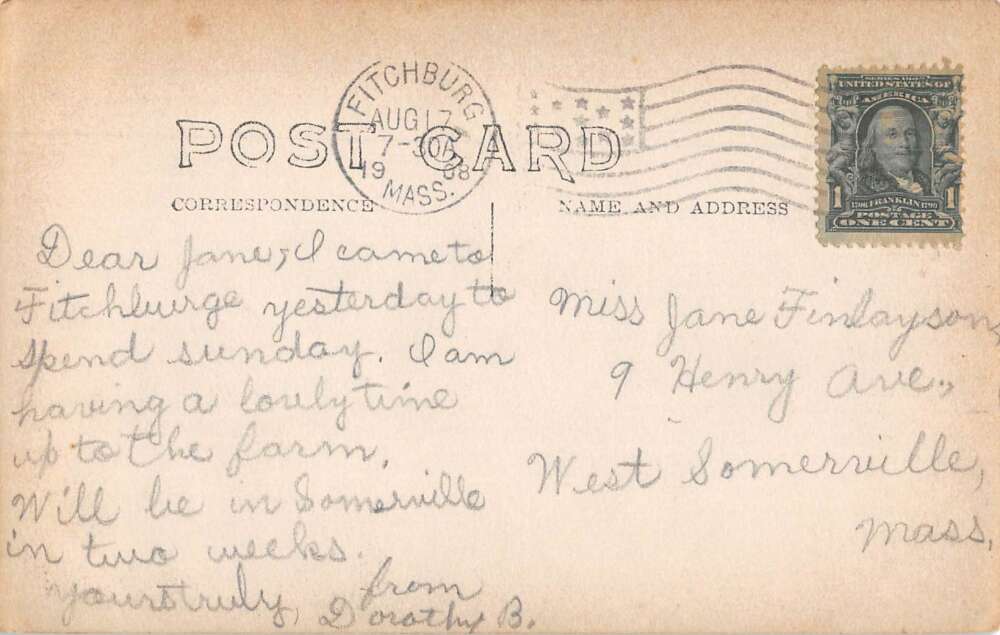 FITCHBURG
AUG 17
7-30
1908
MASS.
POST CARD
CORRESPONDENCE
NAME AND ADDRESS
SERIES 1902
UNITED STATES OF
AMERICA
1706 FRANKLIN 1790
1 1
POSTAGE
ONE CENT
Dear Jane, I came to
Fitchburge yesterday to
spend sunday. I am
having a lovely time
up to the farm.
Will be in Somerville
in two weeks.
yours truly, from
Dorothy B.
Miss Jane Finlayson,
9 Henry Ave.,
West Somerville,
Mass.